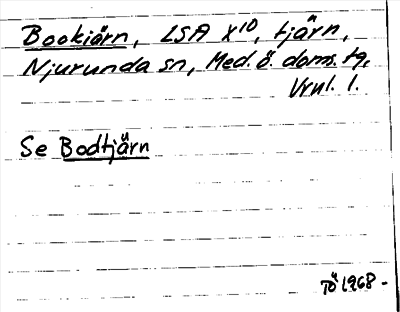 Bookiärn, LSA X10, tjärn,
Njurunda sn, Med. ö. doms. tg,
Vrnl. l.
Se Bodtjärn
TÖ 1968-